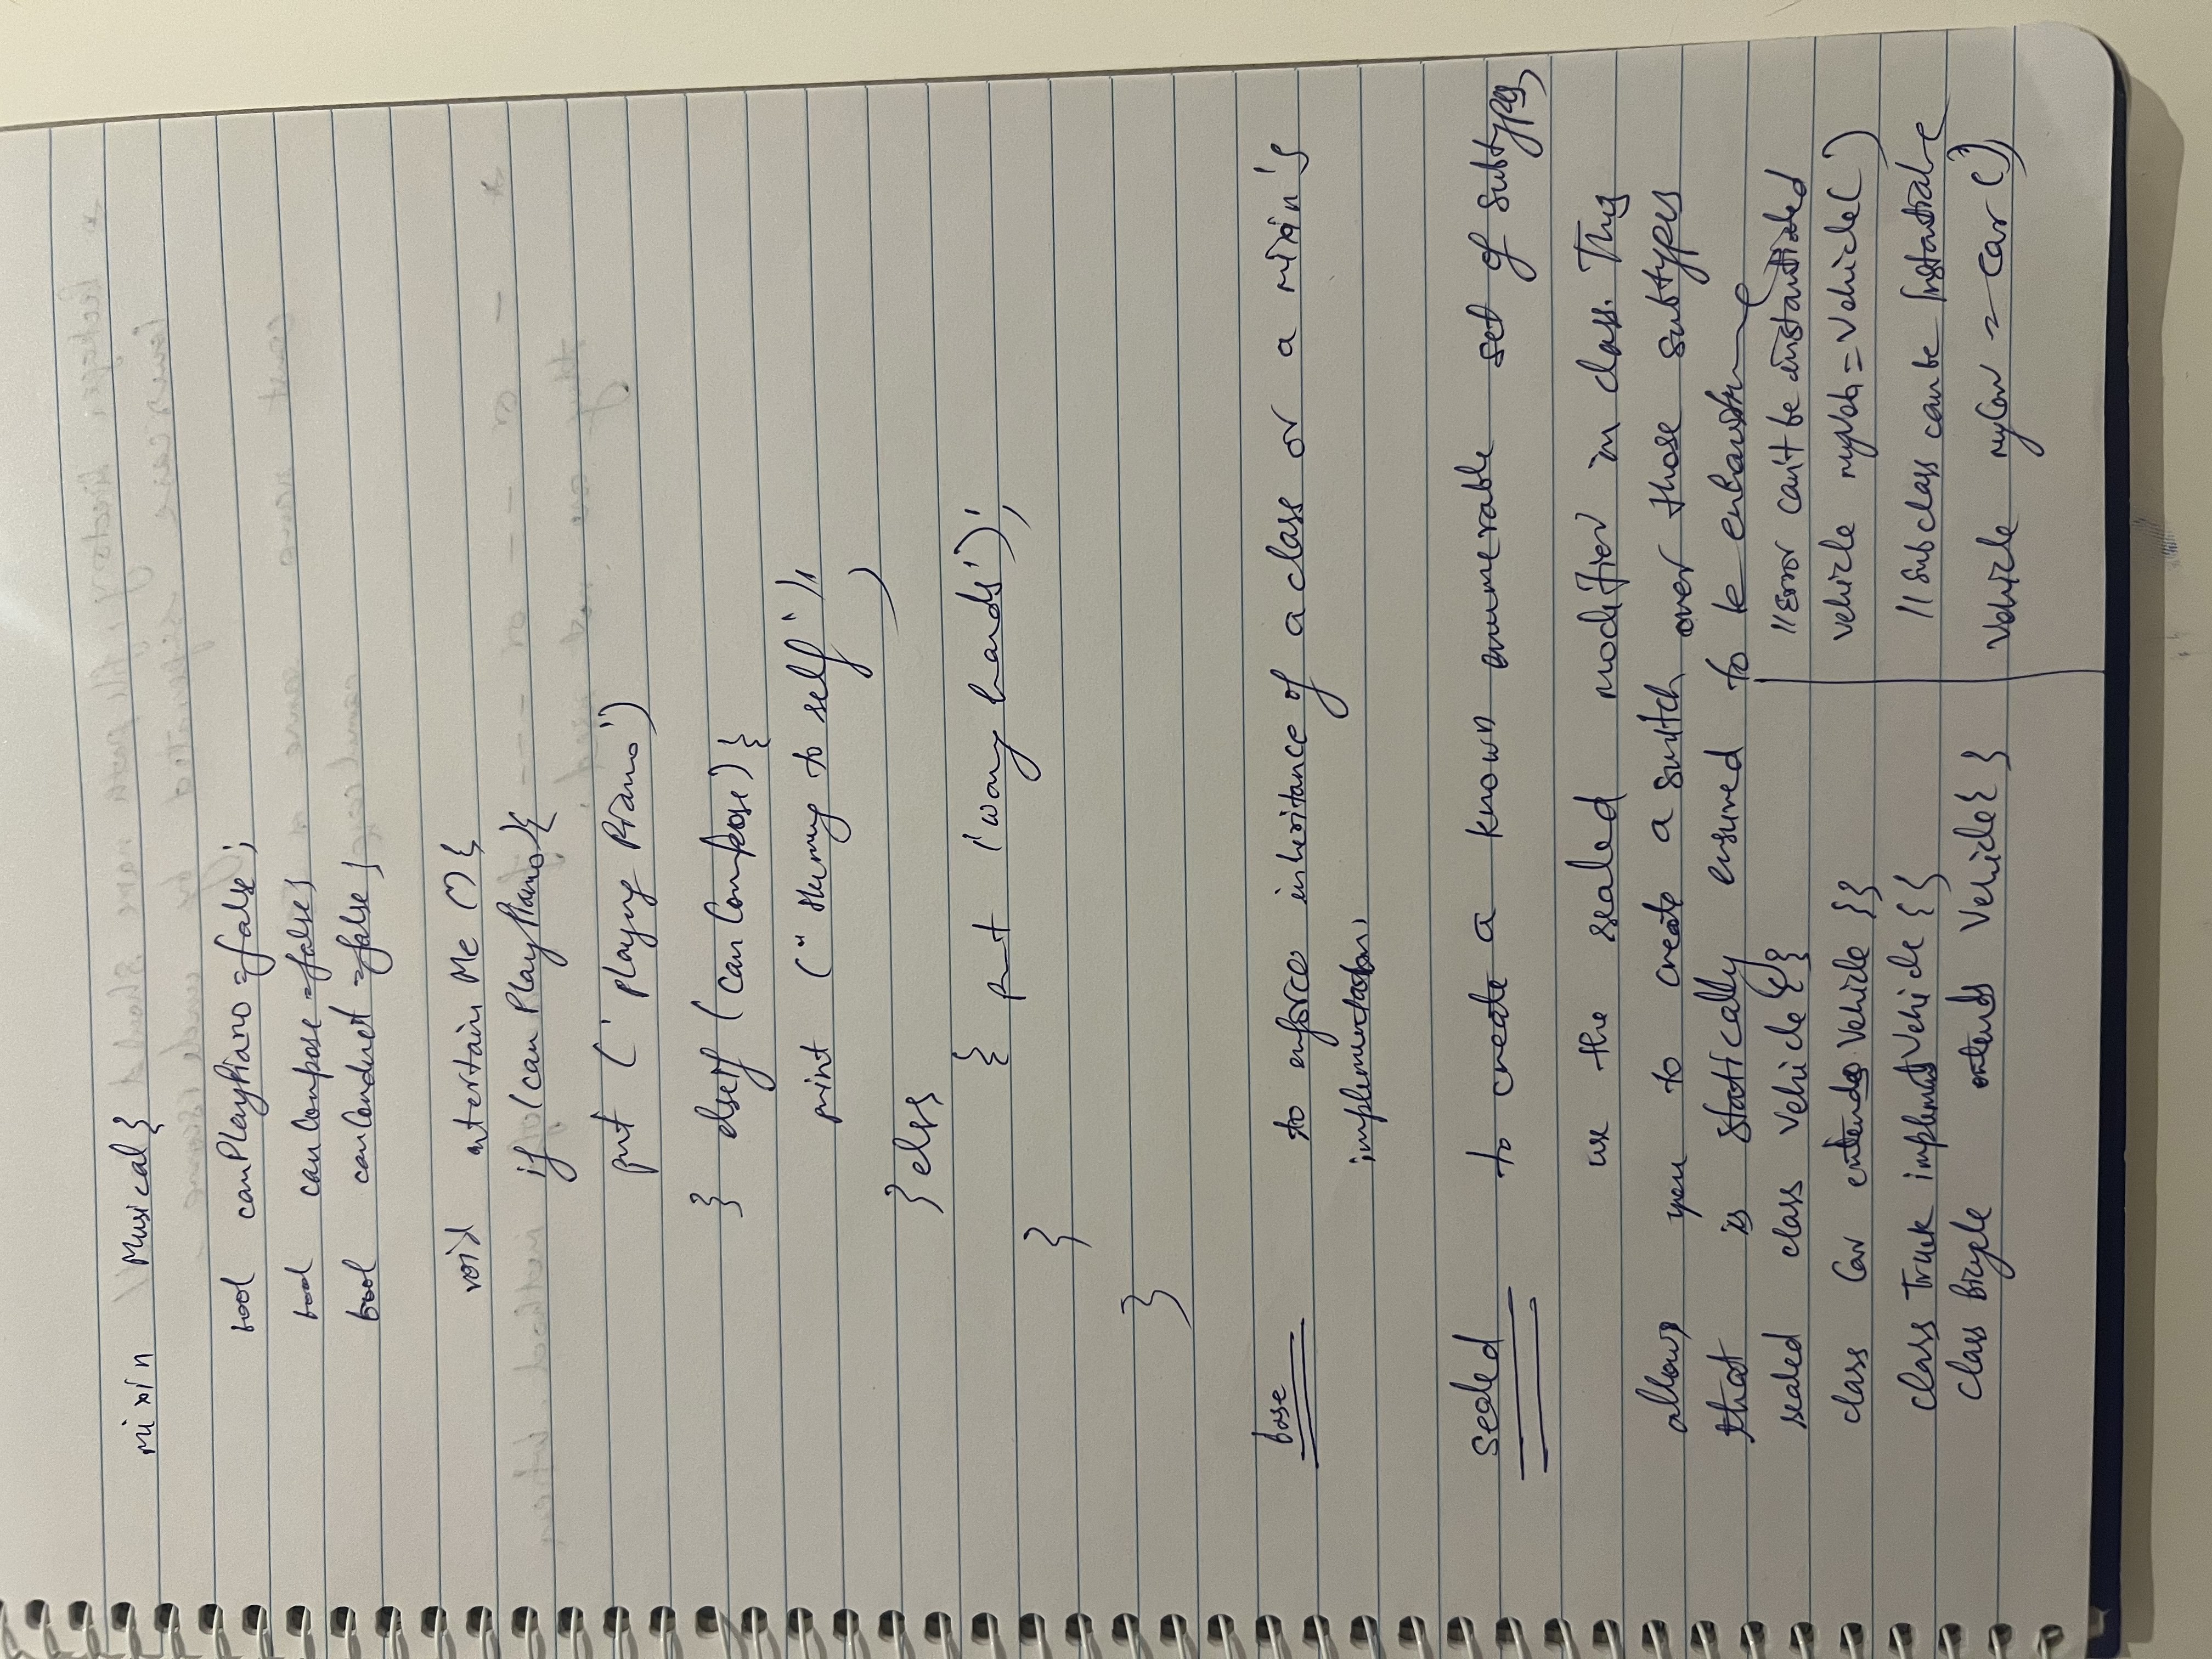 mixin Musical{
bool canPlayPiano = false;
bool canCompose = false;
bool canConduct = false;
void entertainMe () {
if (canPlayPiano){
print ('playing Piano')
} elseif (canCompose) {
print (" Huming to self ");
} else
{ print ('waving hands');
}
}
base to enforce inheritance of a class or a mixin's
implementation.
sealed to create a known enumerable set of subtypes,
use the sealed modifier in class. This
allows you to create a switch over those subtypes
that is statically ensured to be exhaustive
sealed class Vehicle {} //Error can't be instantiated
class Car extends Vehicle {} vehicle myVeh = Vehicle( )
class Truck implements Vehicle {} //Subclass can be Instantiate
class Bicycle extends Vehicle{ } Vehicle myCar = Car ();